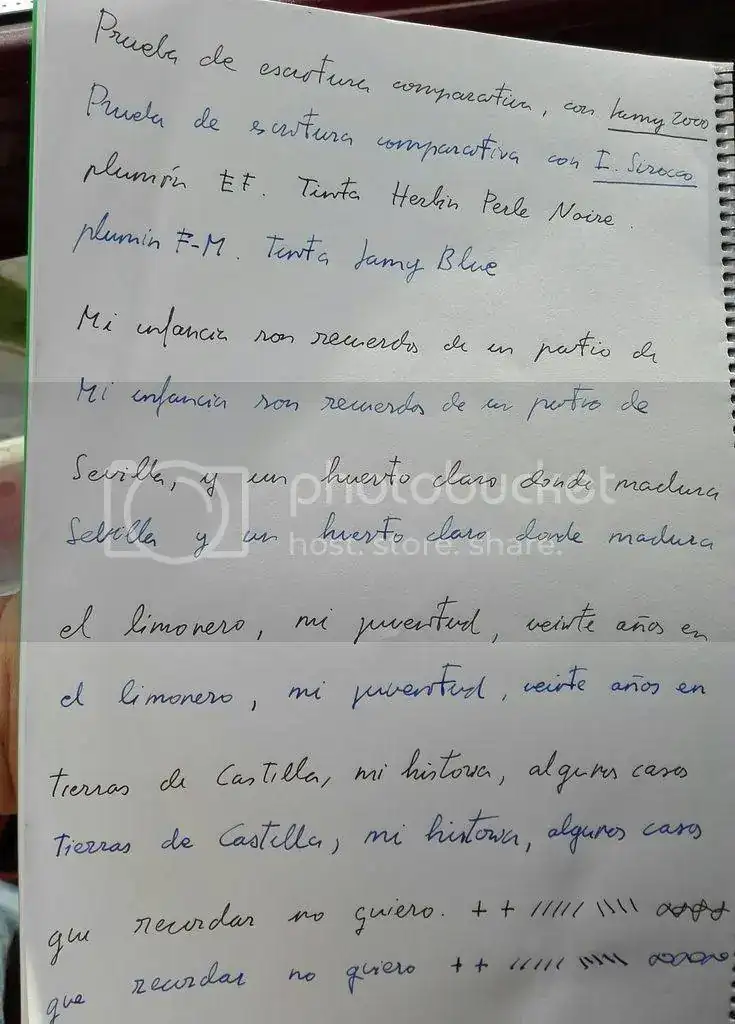 Prueba de escritura comparativa, con Lamy 2000
Prueba de escritura comparativa con I. Sirocco
plumín EF. Tinta Herbin Perle Noire.
plumin F-M. Tinta Lamy Blue
Mi infancia son recuerdos de un patio de
Mi infancia son recuerdos de un patio de
Sevilla, y un huerto claro donde madura
Sebilla y un huerto claro donde madura
el limonero, mi juventud, veinte años en
el limonero, mi juventud, veinte años en
tierras de Castilla, mi historia, algunos casos
tierras de Castilla, mi historia, algunos casos
que recordar no quiero. + + ///// \\\\
que recordar no quiero + + ///// \\\\\
photobucket
host. store. share.